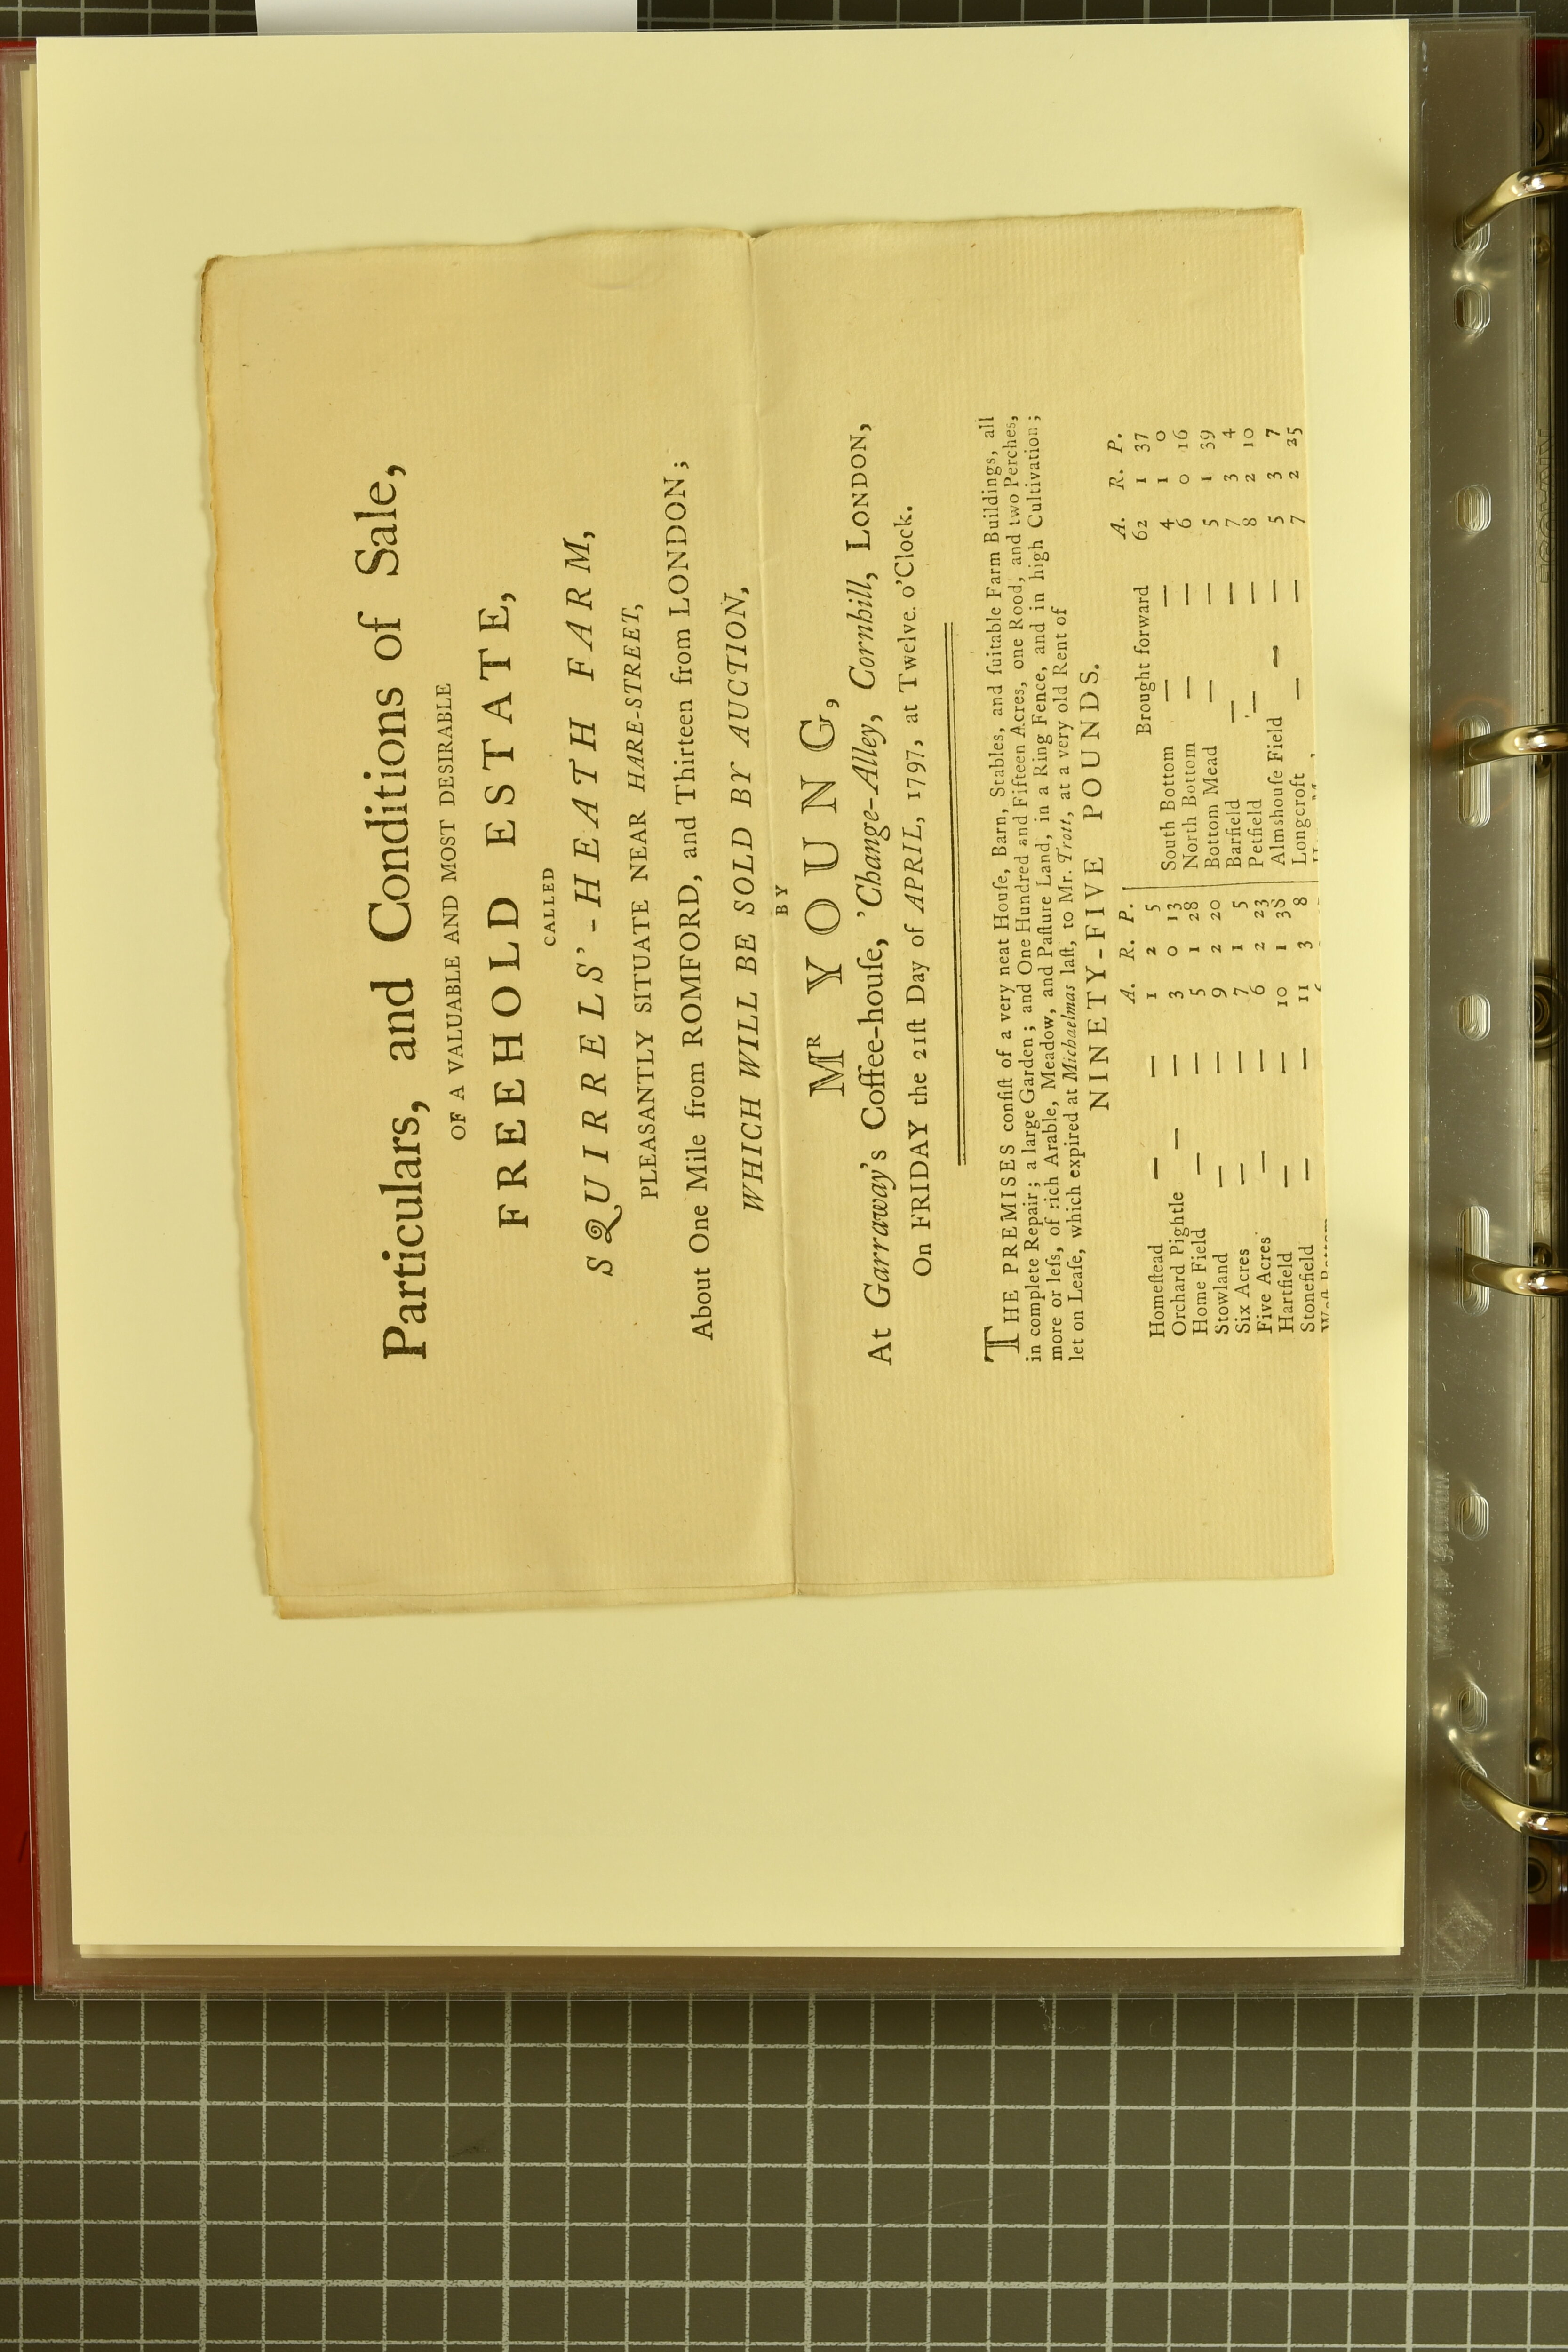 Particulars, and Conditions of Sale,
OF A VALUABLE AND MOST DESIRABLE
FREEHOLD ESTATE,
CALLED
SQUIRRELS'-HEATH FARM,
PLEASANTLY SITUATE NEAR HARE-STREET,
About One Mile from ROMFORD, and Thirteen from LONDON;
WHICH WILL BE SOLD BY AUCTION,
BY
Mr YOUNG,
At Garraway's Coffee-houſe, 'Change-Alley, Cornhill, LONDON,
On FRIDAY the 21ſt Day of APRIL, 1797, at Twelve o'Clock.
THE PREMISES conſiſt of a very neat Houſe, Barn, Stables, and ſuitable Farm Buildings, all
in complete Repair; a large Garden; and One Hundred and Fifteen Acres, one Rood, and two Perches,
more or leſs, of rich Arable, Meadow, and Paſture Land, in a Ring Fence, and in high Cultivation;
let on Leaſe, which expired at Michaelmas laſt, to Mr. Trott, at a very old Rent of
NINETY-FIVE POUNDS.
A. R. P.
Homeſtead — — 1 2 5
Orchard Pightle — — 3 0 13
Home Field — — 5 1 28
Stowland — — 9 2 20
Six Acres — — 7 1 5
Five Acres — — 6 2 23
Hartfield — — 10 1 38
Stonefield — — 11 3 8
A. R. P.
Brought forward 62 1 37
South Bottom — — 4 1 0
North Bottom — — 6 0 16
Bottom Mead — — 5 1 39
Barfield — — 7 3 4
Petfield — — 8 2 10
Almshouſe Field — — 5 3 7
Longcroft — — 7 2 25